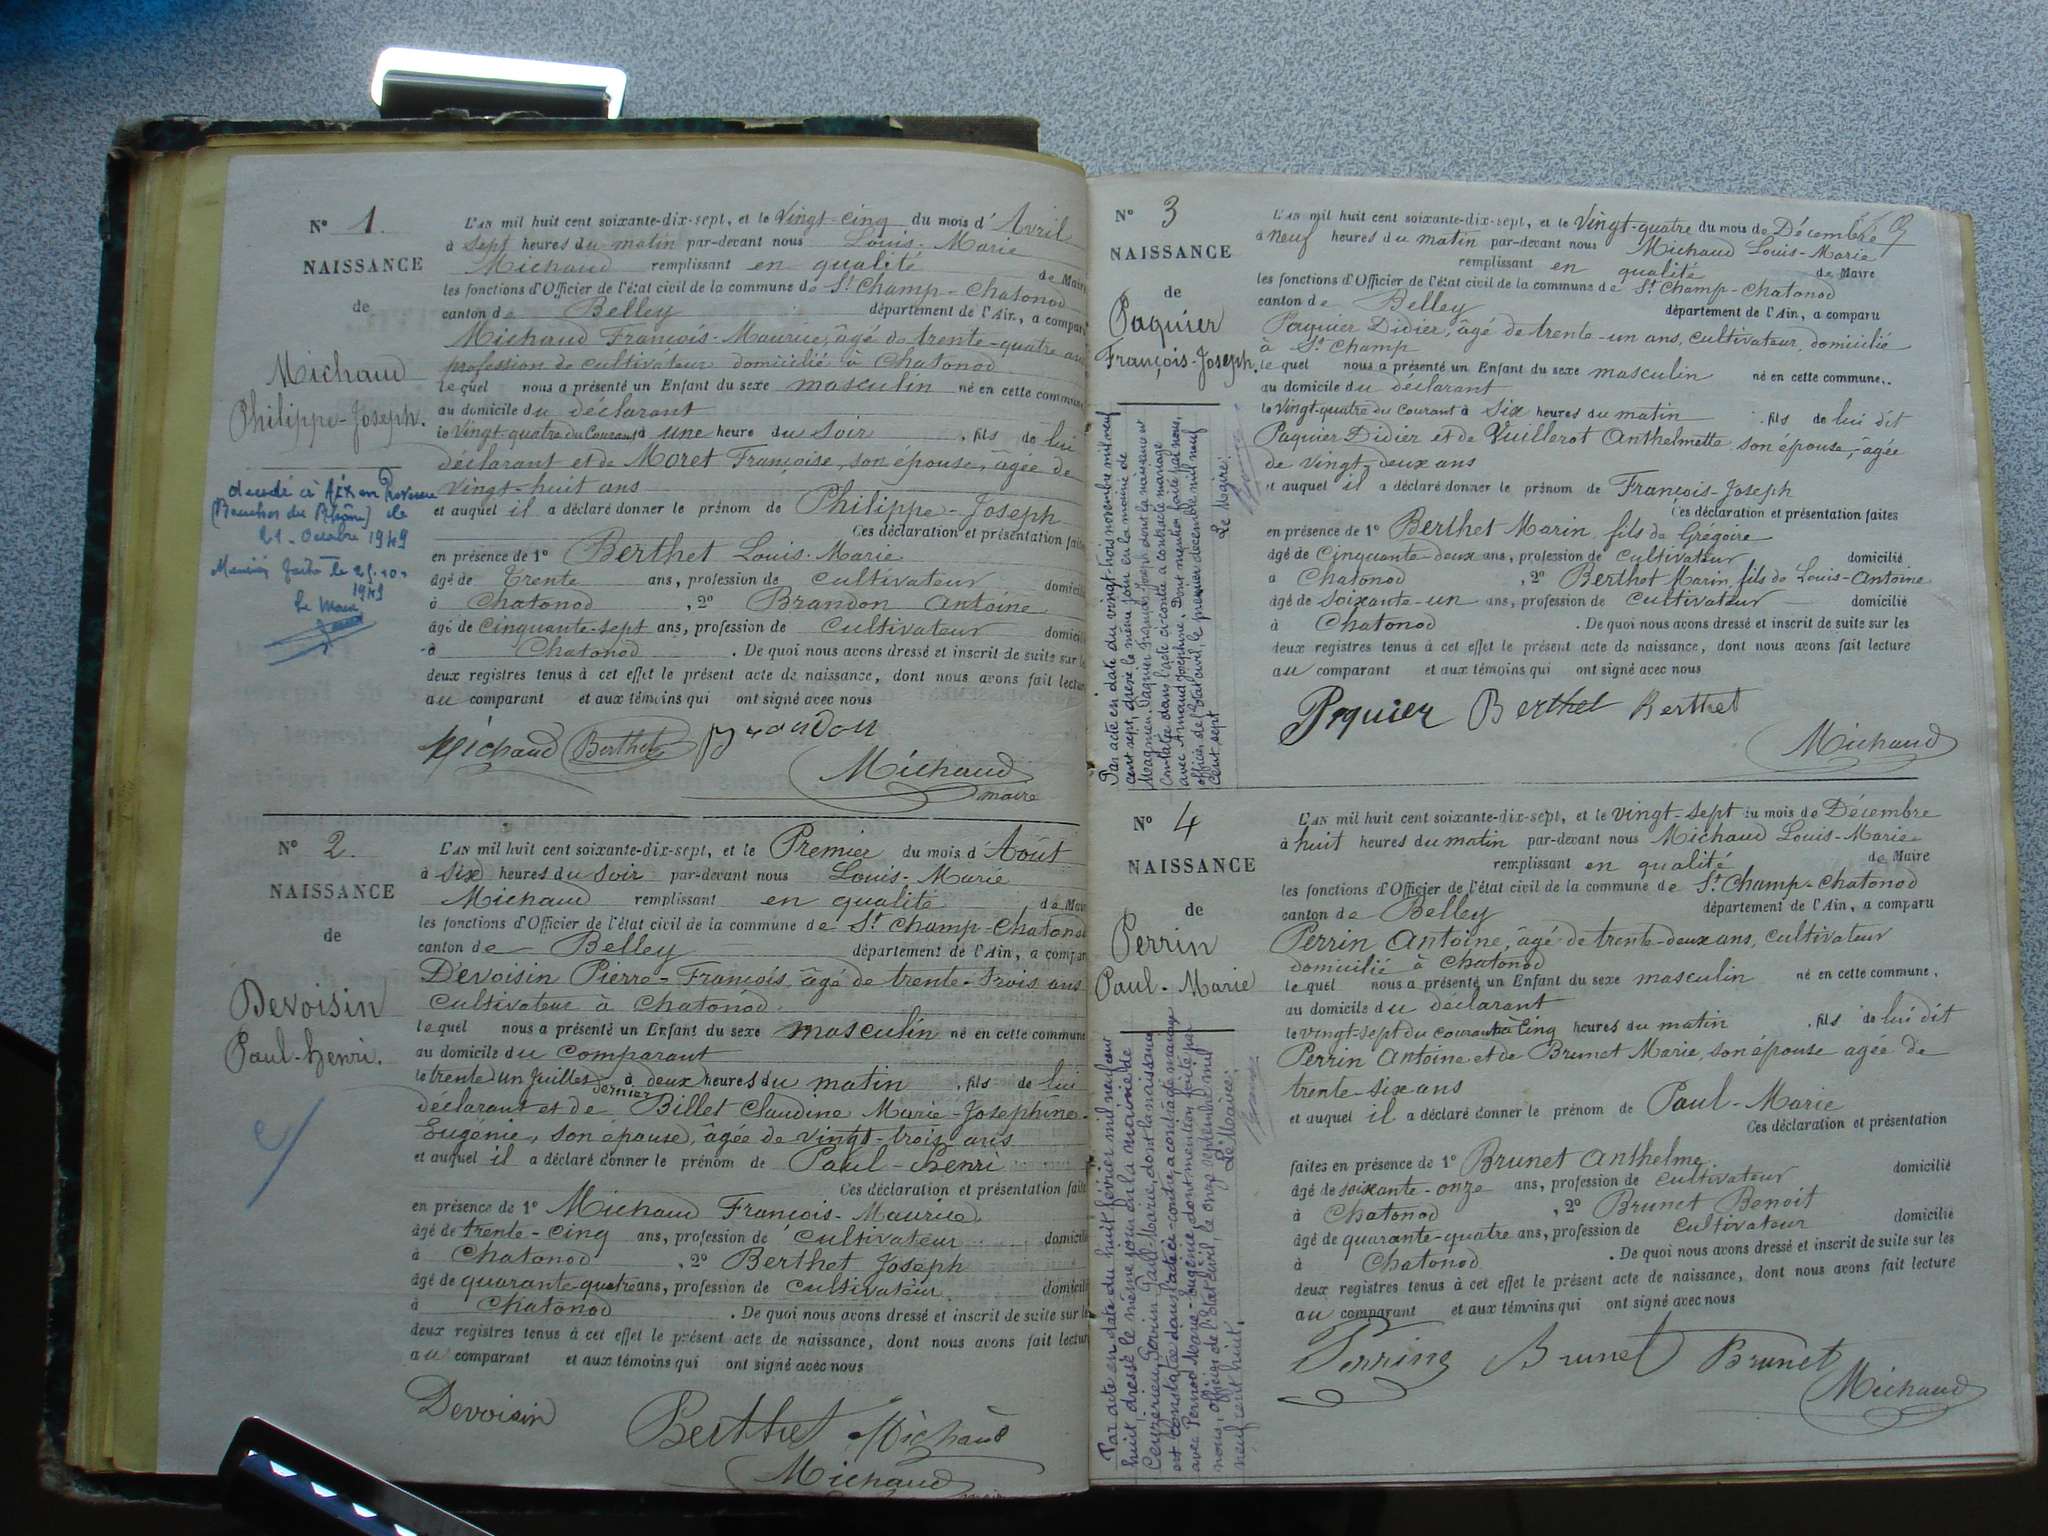 N° 1.
NAISSANCE
de
Michaud
Philippe-Joseph.
décédé à Aix en Provence
(Bouches du Rhône) le
21 Octobre 1949
Mention faite le 25.10.
1949
Le Maire
L'AN mil huit cent soixante-dix-sept, et le Vingt-cinq du mois d'Avril
à sept heures du matin par-devant nous Louis-Marie
Michaud remplissant en qualité de Maire
les fonctions d'Officier de l'état civil de la commune de St Champ-Chatonod
canton de Belley département de l'Ain, a comparu
Michaud François-Maurice, âgé de trente-quatre ans
profession de cultivateur domicilié à Chatonod
lequel nous a présenté un Enfant du sexe masculin né en cette commune
au domicile du déclarant
le Vingt-quatre du Courant à une heure du soir, fils de lui
déclarant et de Moret Françoise, son épouse, âgée de
vingt-huit ans
et auquel il a déclaré donner le prénom de Philippe-Joseph
Ces déclaration et présentation faites
en présence de 1° Berthet Louis-Marie
âgé de Trente ans, profession de cultivateur domicilié
à Chatonod, 2° Brandon Antoine
âgé de cinquante-sept ans, profession de cultivateur domicilié
à Chatonod. De quoi nous avons dressé et inscrit de suite sur les
deux registres tenus à cet effet le présent acte de naissance, dont nous avons fait lecture
au comparant et aux témoins qui ont signé avec nous
Michaud Berthet Brandon
Michaud
maire
N° 2.
NAISSANCE
de
Devoisin
Paul-henri.
L'AN mil huit cent soixante-dix-sept, et le Premier du mois d'Août
à six heures du soir par-devant nous Louis-Marie
Michaud remplissant en qualité de Maire
les fonctions d'Officier de l'état civil de la commune de St Champ-Chatonod
canton de Belley département de l'Ain, a comparu
Devoisin Pierre-François, âgé de trente-trois ans
cultivateur à Chatonod
lequel nous a présenté un Enfant du sexe masculin né en cette commune
au domicile du comparant
le trente un Juillet dernier à deux heures du matin, fils de lui
déclarant et de Billet Claudine Marie-Joséphine-
Eugénie, son épouse, âgée de vingt-trois ans
et auquel il a déclaré donner le prénom de Paul-henri
Ces déclaration et présentation faites
en présence de 1° Michaud François-Maurice
âgé de trente-cinq ans, profession de cultivateur domicilié
à Chatonod, 2° Berthet Joseph
âgé de quarante-quatre ans, profession de cultivateur domicilié
à Chatonod. De quoi nous avons dressé et inscrit de suite sur les
deux registres tenus à cet effet le présent acte de naissance, dont nous avons fait lecture
au comparant et aux témoins qui ont signé avec nous
Devoisin Berthet Michaud
Michaud
N° 3
NAISSANCE
de
Paquier
François-Joseph.
Par acte en date du vingt-trois novembre mil neuf
cent sept, dressé le même jour en la mairie de
Magnieu, Paquier François-Joseph dont la naissance est
constatée dans l'acte ci-contre a contracté mariage
avec Arnaud Joséphine. Dont mention faite par nous,
officier de l'état civil, le premier décembre mil neuf
cent sept
Le Maire:
L'AN mil huit cent soixante-dix-sept, et le Vingt-quatre du mois de Décembre
à neuf heures du matin par-devant nous Michaud Louis-Marie
remplissant en qualité de Maire
les fonctions d'Officier de l'état civil de la commune de St Champ-Chatonod
canton de Belley département de l'Ain, a comparu
Paquier Didier, âgé de trente-un ans, cultivateur, domicilié
à St Champ
lequel nous a présenté un Enfant du sexe masculin né en cette commune.
au domicile du déclarant
le Vingt-quatre du Courant à six heures du matin, fils de lui dit
Paquier Didier et de Vuillerot Anthelmette son épouse, âgée
de vingt-deux ans
et auquel il a déclaré donner le prénom de François-Joseph
Ces déclaration et présentation faites
en présence de 1° Berthet Marin fils de Grégoire
âgé de cinquante-deux ans, profession de cultivateur domicilié
à Chatonod, 2° Berthet Marin, fils de Louis-Antoine
âgé de soixante-un ans, profession de cultivateur domicilié
à Chatonod. De quoi nous avons dressé et inscrit de suite sur les
deux registres tenus à cet effet le présent acte de naissance, dont nous avons fait lecture
au comparant et aux témoins qui ont signé avec nous
Paquier Berthet Berthet
Michaud
N° 4
NAISSANCE
de
Perrin
Paul-Marie
Par acte en date du huit février mil neuf cent
huit, dressé le même jour en la mairie de
Ceyzérieu, Perrin Paul-Marie, dont la naissance
est constatée dans l'acte ci-contre, a contracté mariage
avec Pernod Marie-Eugénie, dont mention faite par
nous, officier de l'état civil, le onze septembre mil
neuf cent huit.
Le Maire:
L'AN mil huit cent soixante-dix-sept, et le vingt-sept du mois de Décembre
à huit heures du matin par-devant nous Michaud Louis-Marie
remplissant en qualité de Maire
les fonctions d'Officier de l'état civil de la commune de St Champ-Chatonod
canton de Belley département de l'Ain, a comparu
Perrin Antoine, âgé de trente-deux ans, cultivateur
domicilié à Chatonod
lequel nous a présenté un Enfant du sexe masculin né en cette commune,
au domicile du déclarant
le vingt-sept du courant à cinq heures du matin, fils de lui dit
Perrin Antoine et de Brunet Marie, son épouse agée de
trente-six ans
et auquel il a déclaré donner le prénom de Paul-Marie
Ces déclaration et présentation
faites en présence de 1° Brunet Anthelme
âgé de soixante-onze ans, profession de cultivateur domicilié
à Chatonod, 2° Brunet Benoit
âgé de quarante-quatre ans, profession de cultivateur domicilié
à Chatonod. De quoi nous avons dressé et inscrit de suite sur les
deux registres tenus à cet effet le présent acte de naissance, dont nous avons fait lecture
au comparant et aux témoins qui ont signé avec nous
Perrin Brunet Brunet
Michaud